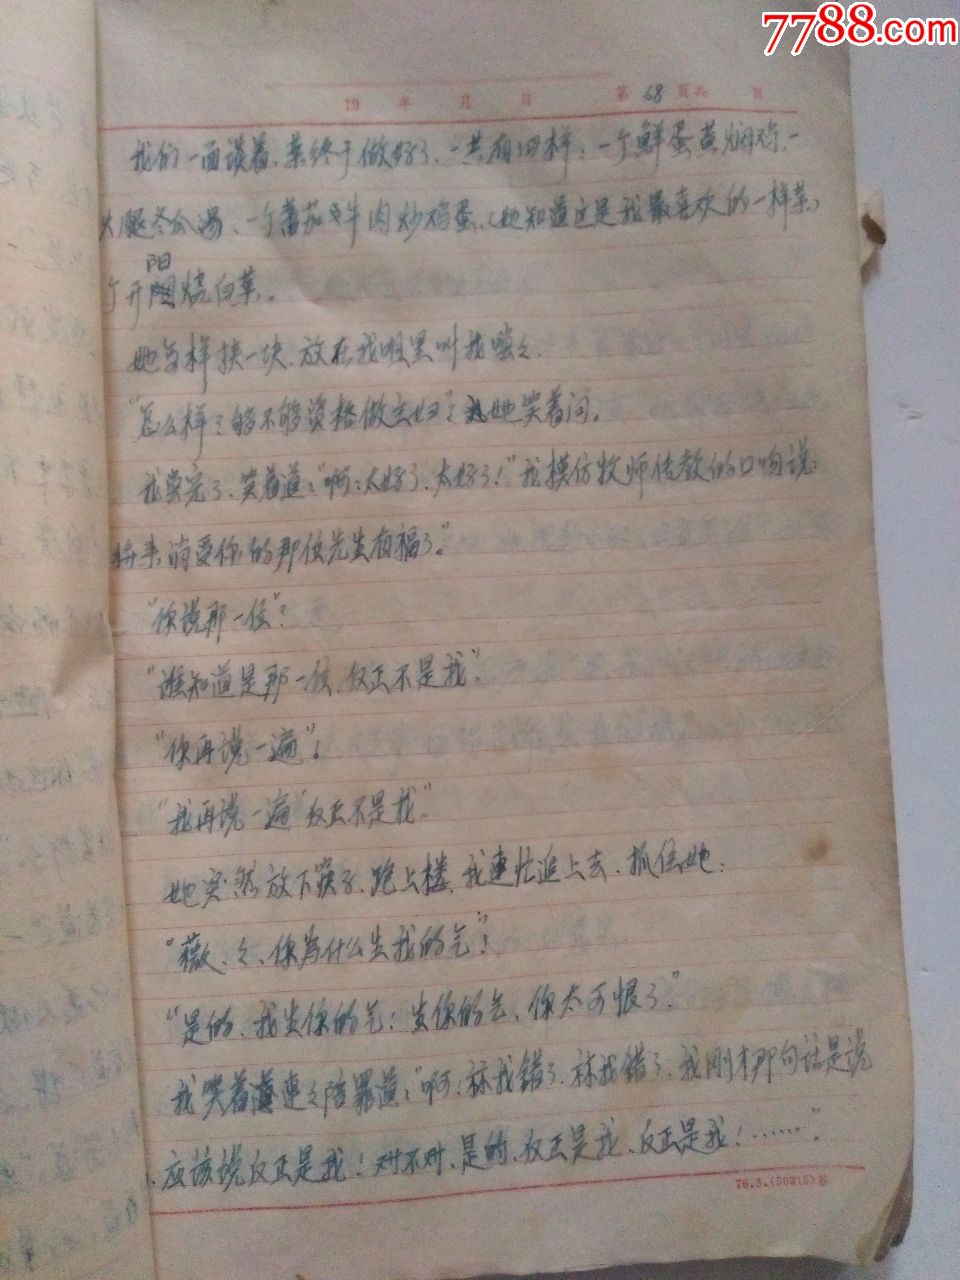 7788.com
19 年 月 日 第 68 页共 页
我们一面谈着，菜终于做好了，一共有四样：一个鲜蛋黄焖鸡，一
火腿冬瓜汤、一个蕃茄牛肉炒鸡蛋，（她知道这是我最喜欢的一样菜）
阳
个开烧白菜。
她每样挟一块，放在我咀里叫我嚐々，
“怎么样？够不够资格做主妇”？她笑着问。
我尝完了，笑着道：“啊：太好了、太好了！”我模仿牧师传教的口吻说：
将来消受你的那位先生有福了。”
“你说那一位”？
“谁知道是那一位，反正不是我”。
“你再说一遍”！
“我再说一遍“反正不是我”。
她突然放下筷子，跑上楼，我連忙追上去，抓住她：
“薇、々、你为什么生我的气”！
“是的、我生你的气！生你的气、你太可恨了。”
我笑着連々陪罪道：“啊：我错了、我错了、我刚才那句话是说
应该说反正是我！对不对、是的、反正是我、反正是我！……”。
76.3.(50315)